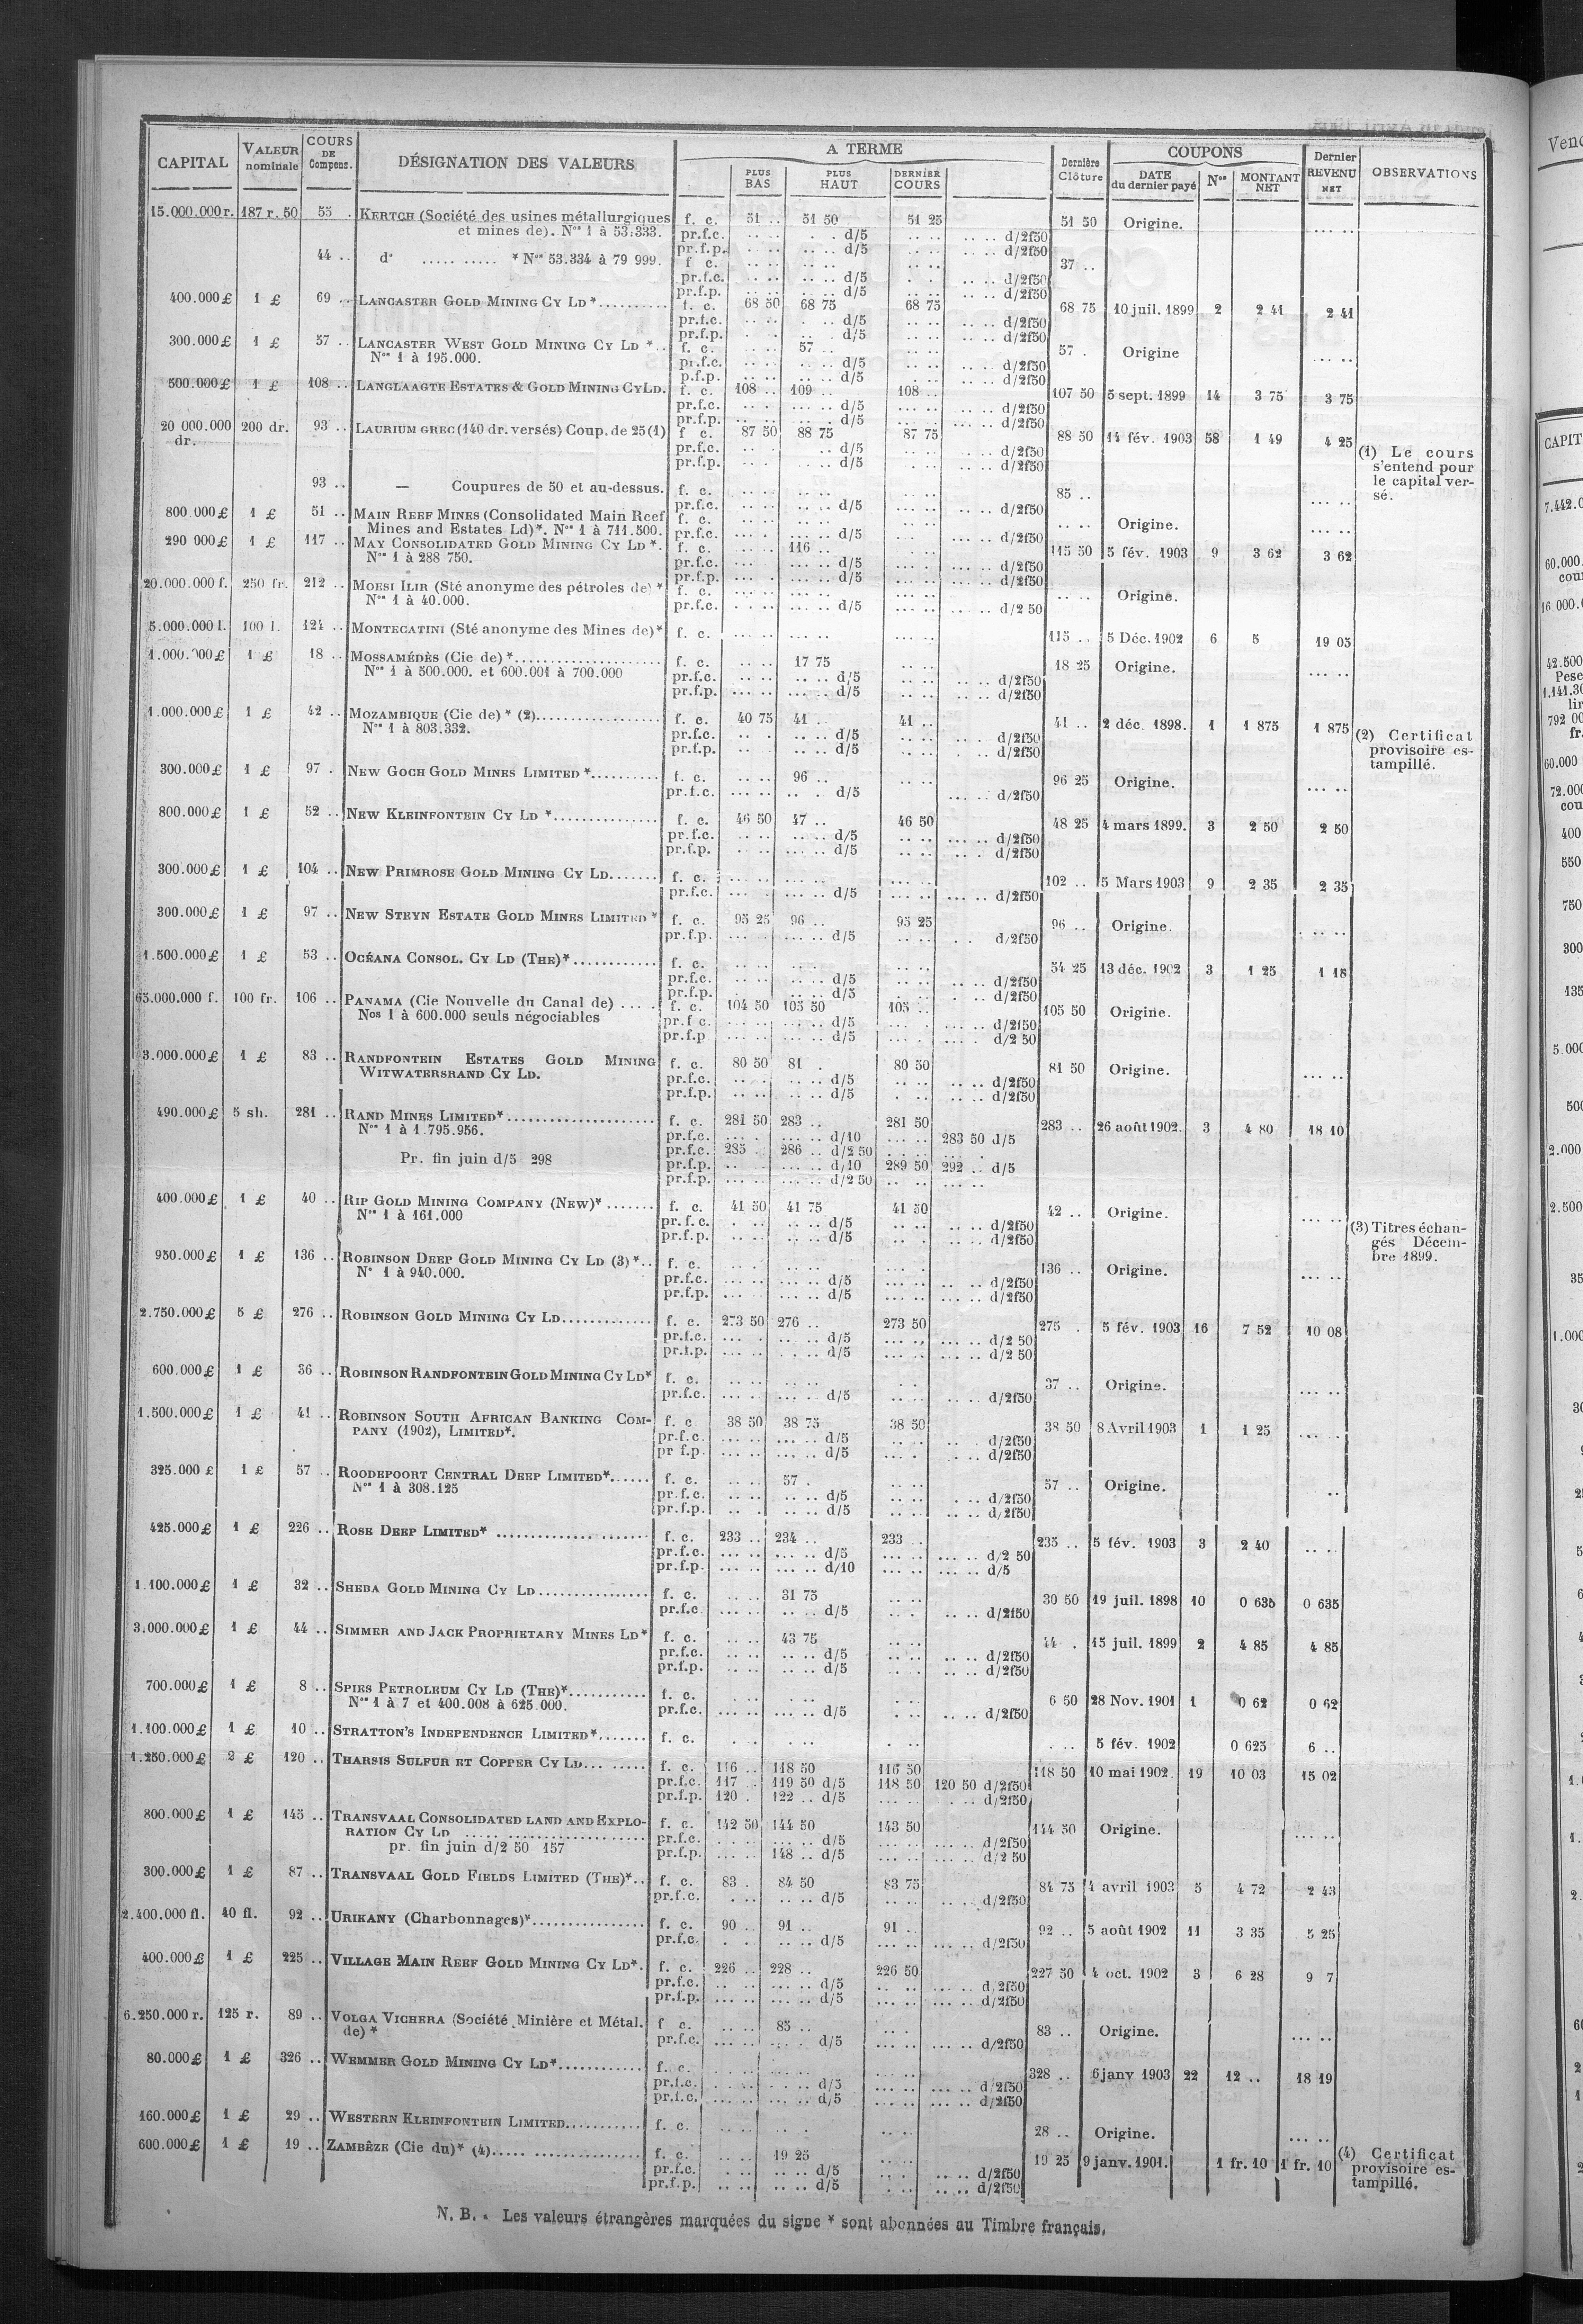 CAPITAL | VALEUR nominale | COURS DE Compens. | DÉSIGNATION DES VALEURS | A TERME | PLUS BAS | PLUS HAUT | DERNIER COURS | Dernière Clôture | COUPONS | DATE du dernier payé | Nos | MONTANT NET | Dernier REVENU NET | OBSERVATIONS
15.000.000 r. 187 r. 50 55 . KERTCH (Société des usines métallurgiques f. c. 51 .. 51 50 51 25 51 50 Origine. .. ..
et mines de). Nos 1 à 53.333. pr.f.c. .. .. . . d/5 .. .. .. .. d/2f50
pr.f.p. .. .. .. .. d/5 . .. .. .. d/2f50
44 .. do ..... ..... * Nos 53.334 à 79 999. f c. .. .. .. .. 37 ..
pr.f.c. .. .. .. .. d/5 . . .. .. d/2f50
pr.f.p. .. .. .. .. d/5 .. .. .. .. d/2f50
400.000 £ 1 £ 69 .. LANCASTER GOLD MINING CY LD *.......... f. c. 68 50 68 75 68 75 68 75 10 juil. 1899 2 2 41 2 41
pr.f.c. .. .. . .. d/5 .. .. .. .. d/2f50
pr.f.p. .. .. .. d/5 .. .. .. .. d/2f50
300.000 £ 1 £ 57 .. LANCASTER WEST GOLD MINING CY LD *.. f. c. .. .. 57 .. .. .. 57 . Origine .. ..
Nos 1 à 195.000. pr.f.c. .. .. .. .. d/5 .. .. .. .. d/2f50
p.f.p. .. .. .. .. d/5 . .. .. .. d/2f50
500.000 £ 1 £ 108 .. LANGLAAGTE ESTATES & GOLD MINING CY LD. f. c. 108 .. 109 .. 108 .. 107 50 5 sept. 1899 14 3 75 3 75
pr.f.c. .. . ... .. d/5 ... .. ... .. d/2f50
pr.f.p. ... .. ... .. d/5 ... .. ... .. d/2f50
20 000.000 dr. 200 dr. 93 .. LAURIUM GREC (140 dr. versés) Coup. de 25 (1) f c. 87 50 88 75 87 75 88 50 14 fév. 1903 58 1 49 4 25
pr.f.c. .. . .. d/5 .. .. .. .. d/2f50
pr.f.p. .. . .. .. d/5 .. . .. .. d/2f50
(1) Le cours
s'entend pour
le capital ver-
sé.
93 .. — Coupures de 50 et au-dessus. f. c. .. .. .. .. . .. 85 .. ... ..
pr.f.c. .. .. .. .. d/5 .. .. .. .. d/2f50
800.000 £ 1 £ 51 .. MAIN REEF MINES (Consolidated Main Reef f. c. .. .. .. .. ... . .. .. Origine. ... ..
Mines and Estates Ld)*. Nos 1 à 711.500. pr.f.c. ... . ... .. d/5 ... .. ... .. d/2f50
290 000 £ 1 £ 117 .. MAY CONSOLIDATED GOLD MINING CY LD *. f. c. ... .. 116 .. ... .. 115 50 5 fév. 1903 9 3 62 3 62
Nos 1 à 288 750. pr.f.c. ... .. ... .. d/5 ... .. ... .. d/2f50
pr.f.p. ... .. ... .. d/5 ... .. ... .. d/2f50
20.000.000 f. 250 fr. 212 .. MOESI ILIR (Sté anonyme des pétroles de) * f. c. ... .. ... .. ... .. .. .. Origine.
Nos 1 à 40.000. pr.f.c. . .. .. ... .. d/5 ... .. ... .. d/2 50
5.000.000 l. 100 l. 124 .. MONTECATINI (Sté anonyme des Mines de)* f. c. ... .. ... .. ... .. 115 .. 5 Déc. 1902 6 5 19 05
1.000.000 £ 1 £ 18 .. MOSSAMÉDÈS (Cie de) *...................... f. c. .. .. 17 75 .. .. 18 25 Origine. ... ..
Nos 1 à 500.000. et 600.001 à 700.000 pr.f.c. .. .. .. .. d/5 .. .. .. .. d/2f50
pr.f.p. ... .. ... .. d/5 .. .. .. .. d/2f50
1.000.000 £ 1 £ 42 .. MOZAMBIQUE (Cie de) * (2).................. f. c. 40 75 41 .. 41 .. 41 .. 2 déc. 1898. 1 1 875 1 875
Nos 1 à 803.332. pr.f.c. .. . .. .. d/5 .. .. .. .. d/2f50
pr.f.p. .. .. .. .. d/5 .. .. . .. d/2f50
(2) Certificat
provisoire es-
tampillé.
300.000 £ 1 £ 97 . NEW GOCH GOLD MINES LIMITED *.......... f. c. .. .. 96 .. .. .. 96 25 Origine. ... ..
pr.f.c. ... .. .. . d/5 ... .. d/2f50
800.000 £ 1 £ 52 .. NEW KLEINFONTEIN CY LD *............... f. c. 46 50 47 .. 46 50 48 25 4 mars 1899. 3 2 50 2 50
pr.f.c. .. .. .. .. d/5 .. .. ... .. d/2f50
pr.f.p. .. .. ... .. d/5 .. .. .. . d/2f50
300.000 £ 1 £ 104 .. NEW PRIMROSE GOLD MINING CY LD....... f. c. ... .. ... .. ... .. 102 .. 5 Mars 1903 9 2 35 2 35
pr.f.c. ... . ... .. d/5 ... .. ... .. d/2f50
300.000 £ 1 £ 97 .. NEW STEYN ESTATE GOLD MINES LIMITED * f. c. 95 25 96 .. 95 25 96 .. Origine. . .. ..
pr.f.p. ... . ... .. d/5 .. .. . . d/2f50
1.500.000 £ 1 £ 53 .. OCÉANA CONSOL. CY LD (THE)*............ f. c. .. .. .. .. .. .. 54 25 13 déc. 1902 3 1 25 1 18
pr.f.c. .. .. .. .. d/5 .. .. .. .. d/2f50
pr.f.p. .. .. .. d/5 . .. . .. d/2f50
65.000.000 f. 100 fr. 106 .. PANAMA (Cie Nouvelle du Canal de) .... . f. c. 104 50 105 50 105 .. 105 50 Origine.
Nos 1 à 600.000 seuls négociables pr.f c. ... .. ... .. d/5 ... . ... .. d/2f50
pr.f.p ... .. ... .. d/5 ... . ... . d/2 50
3.000.000 £ 1 £ 83 .. RANDFONTEIN ESTATES GOLD MINING f. c. 80 50 81 . 80 50 81 50 Origine. ... ..
WITWATERSRAND CY LD. pr.f.c. .. . .. .. d/5 .. .. .. .. d/2f50
pr.f.p. .. .. .. .. d/5 . .. .. .. d/2f50
490.000 £ 5 sh. 281 .. RAND MINES LIMITED*..................... f. c. 281 50 283 .. 281 50 283 .. 26 août 1902. 3 4 80 18 10
Nos 1 à 1.795.956. pr.f.c. ... . ... .. d/10 ... .. 283 50 d/5
pr.f.c. 285 . 286 .. d/2 50 . .. .. ... .
Pr. fin juin d/5 298 pr.f.p. .. . ... .. d/10 289 50 292 .. d/5
pr.f.p. ... .. ... .. d/2 50 .. .. ... ..
400.000 £ 1 £ 40 .. RIP GOLD MINING COMPANY (NEW)*....... f. c. 41 50 41 75 41 50 42 .. Origine. ... ..
Nos 1 à 161.000 pr. f. c. . .. .. .. d/5 .. .. .. .. d/2f50
pr.f.p. .. .. .. .. d/5 .. .. .. .. d/2f50
(3) Titres échan-
gés Décem-
bre 1899.
950.000 £ 1 £ 136 .. ROBINSON DEEP GOLD MINING CY LD (3) *.. f. c. . .. ... .. ... . 136 .. Origine. ... ..
No 1 à 940.000. pr.f.c. ... .. ... .. d/5 ... .. .. .. d/2f50
pr.f.p. ... .. ... .. d/5 ... .. .. .. d/2f50
2.750.000 £ 5 £ 276 .. ROBINSON GOLD MINING CY LD............. f. c. 273 50 276 .. 273 50 275 . 5 fév. 1903 16 7 52 10 08
pr.f.c. ... . .. .. d/5 ... .. ... .. d/2 50
pr.f.p. ... .. . .. d/5 ... .. ... .. d/2 50
600.000 £ 1 £ 36 .. ROBINSON RANDFONTEIN GOLD MINING CY LD* f. c. .. .. .. .. . . 37 .. Origine. ... ..
pr.f.c. ... .. ... . d/5 .. .. .. .. d/2f50
1.500.000 £ 1 £ 41 .. ROBINSON SOUTH AFRICAN BANKING COM- f. c 38 50 38 75 38 50 38 50 8 Avril 1903 1 1 25 ... ..
PANY (1902), LIMITED*. pr.f.c. ... .. ... .. d/5 .. . .. . d/2f50
pr f.p. ... .. ... .. d/5 ... . .. .. d/2f50
325.000 £ 1 £ 57 .. ROODEPOORT CENTRAL DEEP LIMITED*...... f. c. .. .. 57 . .. .. 57 .. Origine. ..
Nos 1 à 308.125 pr.f.c. .. .. .. .. d/5 .. .. . .. d/2f50
pr.f.p. .. . .. .. d/5 .. .. .. .. d/2f50
425.000 £ 1 £ 226 .. ROSE DEEP LIMITED* ................ ..... f. c. 233 .. 234 .. 233 .. 235 .. 5 fév. 1903 3 2 40 .. ..
pr.f.c. ... .. ... .. d/5 ... .. ... .. d/2 50
pr.f.p. ... .. ... .. d/10 ... .. ... .. d/5
1.100.000 £ 1 £ 32 .. SHEBA GOLD MINING CY LD................ f. c. .. .. 31 75 .. .. 30 50 19 juil. 1898 10 0 635 0 635
pr.f.c ... .. .. .. d/5 .. . .. .. d/2f50
3.000.000 £ 1 £ 44 .. SIMMER AND JACK PROPRIETARY MINES LD* f. c. .. .. 43 75 .. .. 44 . 15 juil. 1899 2 4 85 4 85
pr.f.c. .. .. .. .. d/5 .. .. .. .. d/2f50
pr.f.p. .. .. .. .. d/5 .. . .. .. d/2f50
700.000 £ 1 £ 8 .. SPIES PETROLEUM CY LD (THE)*........... f. c. . .. .. .. . .. 6 50 28 Nov. 1901 1 0 62 0 62
Nos 1 à 7 et 400.008 à 625.000. pr.f.c. ... .. ... .. d/5 . .. .. .. d/2f50
1.100.000 £ 1 £ 10 .. STRATTON'S INDEPENDENCE LIMITED*....... f. c. . . .. .. . .. . .. 5 fév. 1902 0 625 6 ..
1.250.000 £ 2 £ 120 .. THARSIS SULFUR ET COPPER CY LD... ..... f. c. 116 .. 118 50 116 50 118 50 10 mai 1902. 19 10 03 15 02
pr.f.c. 117 . 119 50 d/5 118 50 120 50 d/2f50
pr.f.p. 120 . 122 .. d/5 ... .. . .. d/2f50
800.000 £ 1 £ 145 .. TRANSVAAL CONSOLIDATED LAND AND EXPLO- f. c. 142 50 144 50 143 50 144 50 Origine. ... ..
RATION CY LD ..... .................... pr.f.c. . .. . ... .. d/5 ... .. ... .. d/2f50
pr. fin juin d/2 50 157 pr.f.p. ... .. 148 .. d/5 ... .. ... .. d/2 50
300.000 £ 1 £ 87 .. TRANSVAAL GOLD FIELDS LIMITED (THE)*.. f. c. 83 . 84 50 83 75 84 75 4 avril 1903 5 4 72 2 43
pr.f.c. . .. .. .. d/5 .. .. .. .. d/2f50
2.400.000 fl. 40 fl. 92 .. URIKANY (Charbonnages)*................ f. c. 90 .. 91 .. 91 .. 92 .. 5 août 1902 11 3 35 5 25
pr.f.c. . .. .. .. d/5 ... .. ... .. d/2f50
400.000 £ 1 £ 225 .. VILLAGE MAIN REEF GOLD MINING CY LD*. f. c. 226 .. 228 .. 226 50 227 50 4 oct. 1902 3 6 28 9 7
pr.f.c. .. .. ... .. d/5 .. .. ... .. d/2f50
pr.f.p. ... .. ... .. d/5 ... .. ... .. d/2f50
6.250.000 r. 125 r. 89 .. VOLGA VICHERA (Société Minière et Métal. f c. .. .. 85 .. .. . 83 .. Origine. ... ..
de) * pr.f.c. ... .. ... . d/5 ... .. ... .. d/2f50
80.000 £ 1 £ 326 .. WEMMER GOLD MINING CY LD*............ f. c. ... .. ... .. 328 .. 6 janv 1903 22 12 .. 18 19
pr.f.c. . .. .. . .. d/5 ... .. ... .. d/2f50
pr.f.c. ... .. ... .. d/5 ... .. ... .. d/2f50
160.000 £ 1 £ 29 .. WESTERN KLEINFONTEIN LIMITED........... f. c. .. .. .. . .. .. 28 .. Origine. ... ..
600.000 £ 1 £ 19 .. ZAMBÈZE (Cie du)* (4)..... .............. f. c. .. .. 19 25 .. .. 19 25 9 janv. 1901. 1 fr. 10 1 fr. 10
pr.f.c. . .. .. .. d/5 .. .. .. .. d/2f50
pr.f.p. .. .. .. .. d/5 . .. .. .. d/2f50
(4) Certificat
provisoire es-
tampillé.
N. B. . Les valeurs étrangères marquées du signe * sont abonnées au Timbre français.
Vend
CAPIT
7.442.0
60.000
cou
16.000.0
42.500
Pese
1.141.30
lir
792 00
fr.
60.000
72.000
cou
400
550
750
300
135
5.000
500
2.000
2.500
35
1.000